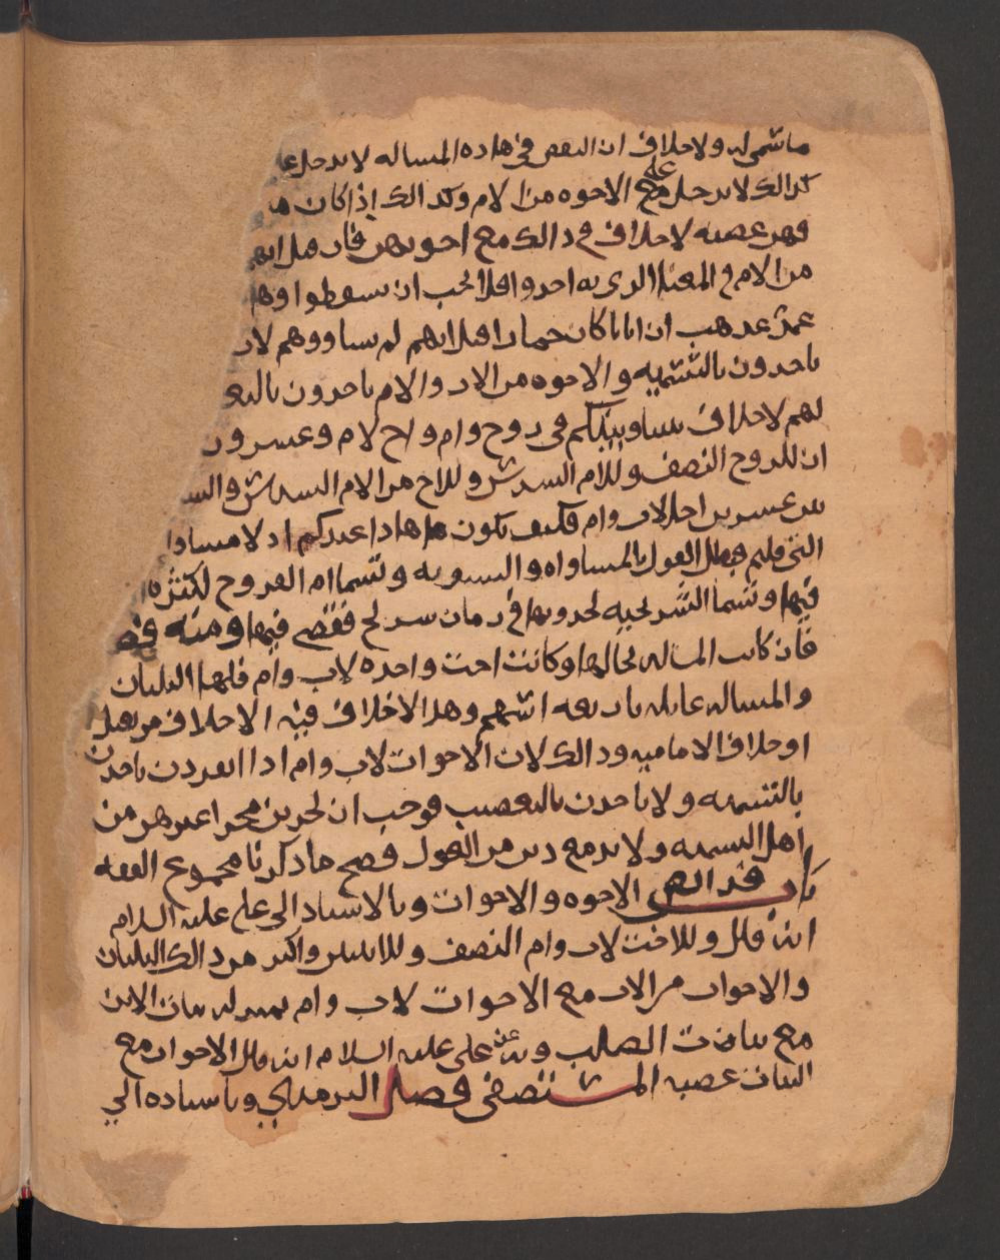 ما سمى له ولا خلاف ان النقص في هاذه المساله لا يدخل على
كذالك لا يدخل على الاخوه من الام وكذالك إذا كان
فهن عصبه لا خلاف في ذالك مع اخوتهن فان قيل انهم
من الام في المعنا الذي به اخذوا فلا يجب ان يسقطوا وها
عمر مذهب ان ابانا كان حمارا قيل انهم لم يساووهم لان
ياخذون بالتسميه والاخوه من الاب والام ياخذون بالتع
لهم لا خلاف بيننا وبينكم في زوج وام واخ لام وعشرون
ان للزوج النصف وللام السدس وللاخ من الام السدس والس
بين عشرين اخا لاب وام فكيف يكون هاذا عندكم اذ لا مساوا
التي قلتم فبطل القول بالمساواه والتسويه وتسما ام الفروخ لكثرة
فيها وتسما الشريحيه لحدوثها في زمان شريح فقضى فيها ومنه
فان كانت المساله بحالها وكانت اخت واحده لاب وام فلها الثلثان
والمساله عايله باربعه اسهم وهذا الاخلاف فيه الا خلاف من
او خلاف الاماميه وذالك لان الاخوات لاب وام اذا انفردن ياخذن
بالتسميه ولا ياخذن بالتعصيب فوجب ان يجرين مجرا غيرهن من
اهل التسميه ولا بد مع ذلك من العول فصح ما ذكرنا مجموع الفقه
باب فرائض الاخوه والاخوات وبالاسناد الى علي عليه السلام
انه قال وللاخت لاب وام النصف وللاثنتين واكثر من ذالك الثلثان
والاخوات من الاب مع الاخوات لاب وام بمنزله بنات الابن
مع بنات الصلب وبه عن علي عليه السلام انه قال الاخوات مع
البنات عصبه المستصفى فصل الترمذي وباسناده الى